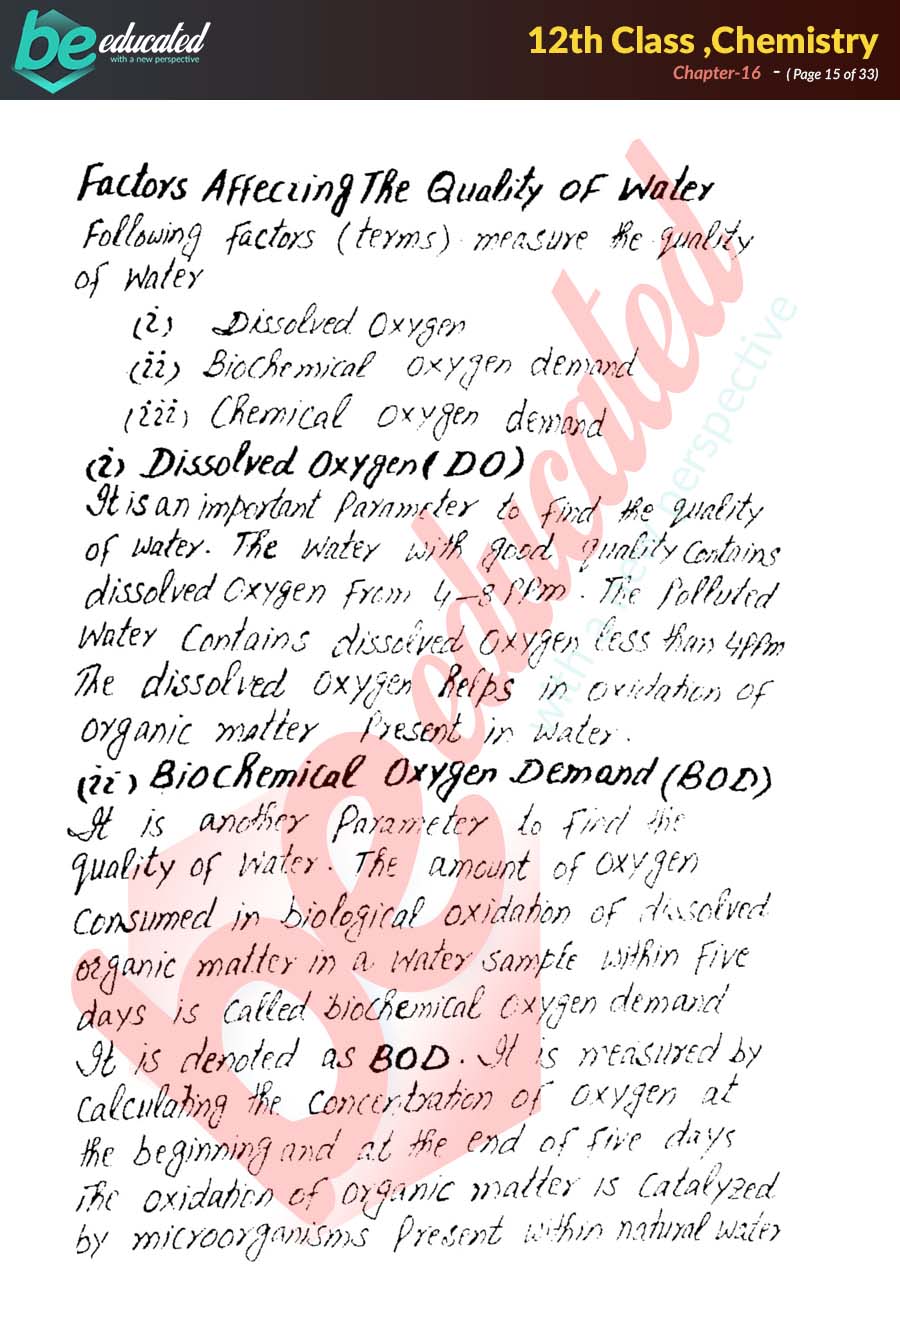 be educated
with a new perspective
12th Class ,Chemistry
Chapter-16 - ( Page 15 of 33)
Factors Affecting The Quality of Water
Following factors (terms) measure the quality
of water
(i) Dissolved Oxygen
(ii) Biochemical oxygen demand
(iii) Chemical oxygen demand
(i) Dissolved Oxygen (DO)
It is an important Parameter to find the quality
of water. The water with good quality contains
dissolved oxygen from 4-8 PPm. The Polluted
water contains dissolved oxygen less than 4PPm
The dissolved oxygen helps in oxidation of
organic matter Present in water.
(ii) Biochemical Oxygen Demand (BOD)
It is another Parameter to find the
quality of water. The amount of oxygen
consumed in biological oxidation of dissolved
organic matter in a water sample within five
days is called biochemical oxygen demand
It is denoted as BOD. It is measured by
calculating the concentration of oxygen at
the beginning and at the end of five days
The oxidation of organic matter is catalyzed
by microorganisms Present within natural water
be educated
with a new perspective